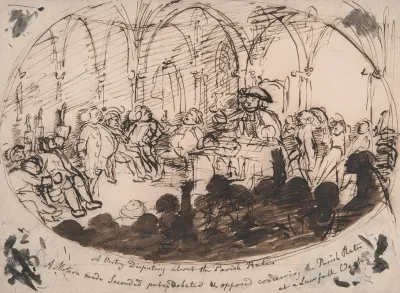 A Vestry Disputing about the Parish Rates
A Motion made Seconded put & debated & opposed concerning the Parish Rates
at a Lawfull Vestry